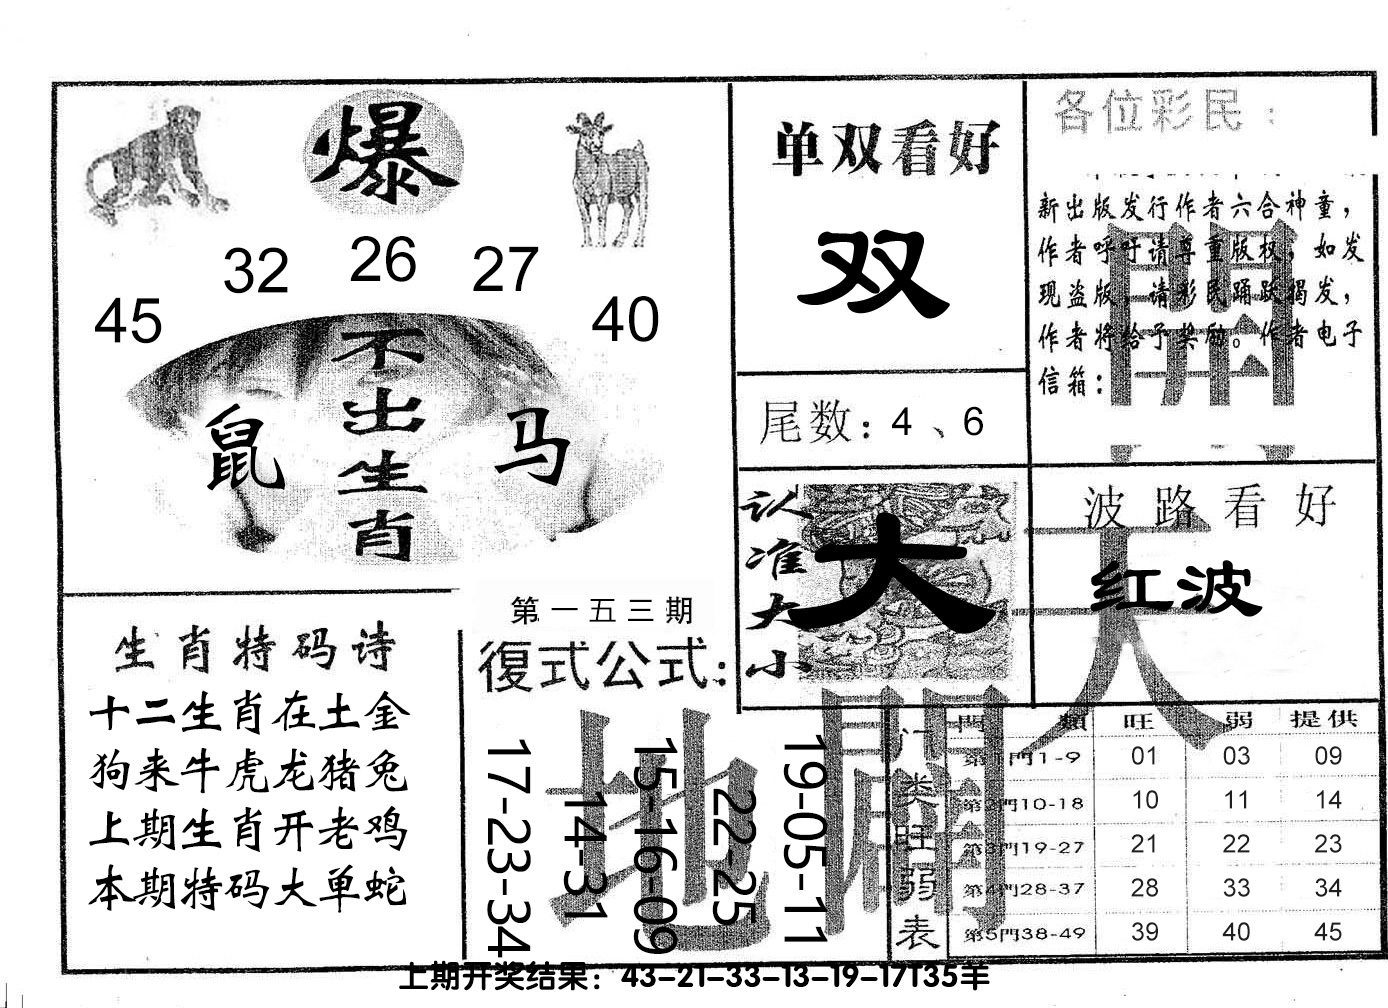 爆
45 32 26 27 40
不出生肖
鼠 马
单双看好
双
尾数：4、6
各位彩民：
新出版发行作者六合神童，
作者呼吁请尊重版权，如发
现盗版，请彩民踊跃揭发，
作者将给予奖励。作者电子
信箱：
開
认准大小
大
波路看好
红波
天
生肖特码诗
十二生肖在土金
狗来牛虎龙猪兔
上期生肖开老鸡
本期特码大单蛇
第一五三期
復式公式：
17-23-34
14-31
15-16-09
22-25
19-05-11
地
闢
门类旺弱表
門類 旺 弱 提供
第1門1-9 01 03 09
第2門10-18 10 11 14
第3門19-27 21 22 23
第4門28-37 28 33 34
第5門38-49 39 40 45
上期开奖结果：43-21-33-13-19-17T35羊